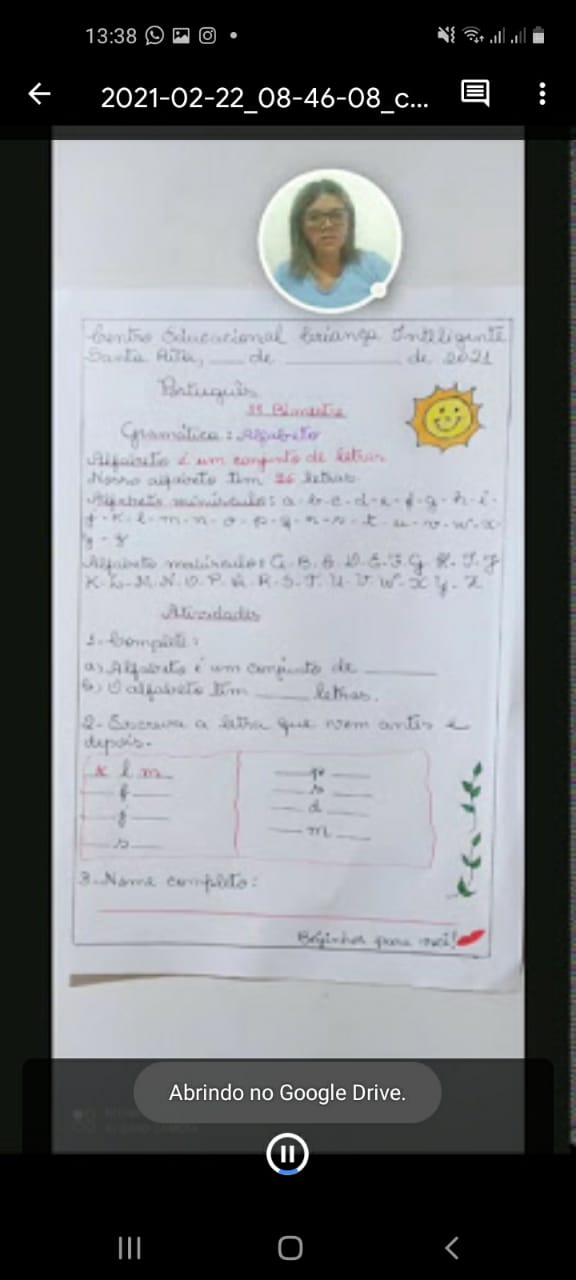 13:38
2021-02-22_08-46-08_c...
Centro Educacional Criança Inteligente
Santa Rita, ___ de ___ de 2021
Português
1º Bimestre
Gramática: Alfabeto
Alfabeto é um conjunto de letras
Nosso alfabeto tem 26 letras
Alfabeto minúsculo: a-b-c-d-e-f-g-h-i-
j-k-l-m-n-o-p-q-r-s-t-u-v-w-x
y-z
Alfabeto maiúsculo: A-B-C-D-E-F-G-H-I-J
K-L-M-N-O-P-Q-R-S-T-U-V-W-X-Y-Z
Atividades
1-Complete:
a) Alfabeto é um conjunto de ___
b) O alfabeto tem ___ letras.
2-Escreva a letra que vem antes e
depois.
k l m ___ p ___
___ f ___ ___ ___
___ ___ ___ d ___
___ s ___ ___ m ___
3-Nome completo:
Beijinhos para você!
Abrindo no Google Drive.